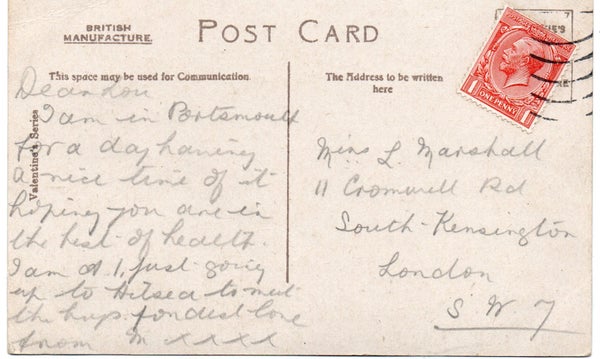 BRITISH
MANUFACTURE.
POST CARD
This space may be used for Communication.
The Address to be written
here
Valentine's Series
ONE PENNY
1 1
Dear Lou
I am in Portsmouth
for a day having
a nice time of it
hoping you are in
the best of health.
I am just going
up to Hilsea to meet
the fondest love
from M xxxx
Miss L Marshall
11 Cromwell Rd
South-Kensington
London
S. W. 7